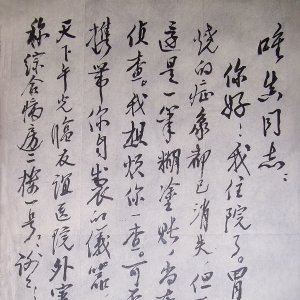 唯真同志：
你好！我住院了。胃
烧的症象都已消失，但
这是一笔糊塗账，当在
侦查。我想烦你一查。可否
携带你自装的仪器
天下午先临友谊医院外宾
称综合病房二楼一号，谢谢！